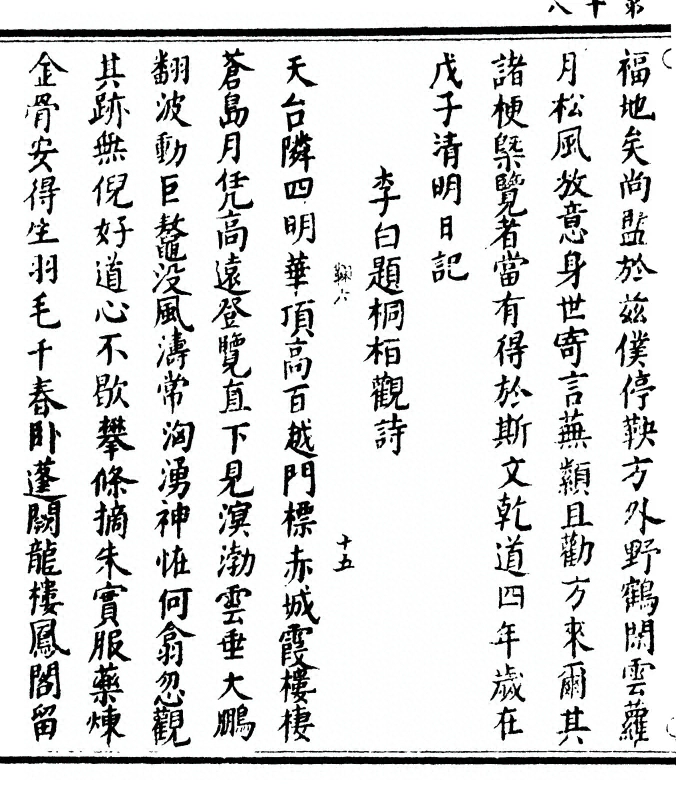 福地矣尚盟於兹僕停鞅方外野鶴閑雲蘿
月松風放意身世寄言蕪纇且勸方來爾其
諸梗槩覽者當有得於斯文乾道四年歲在
戊子清明日記
李白題桐栢觀詩
十五
天台隣四明華頂高百越門標赤城霞樓棲
蒼島月凭高遠登覽直下見溟渤雲垂大鵬
翻波動巨鼇没風濤常洶湧神恠何翕忽觀
其跡無倪好道心不歇攀條摘朱實服藥煉
金骨安得生羽毛千春卧蓬闕龍樓鳳閣留